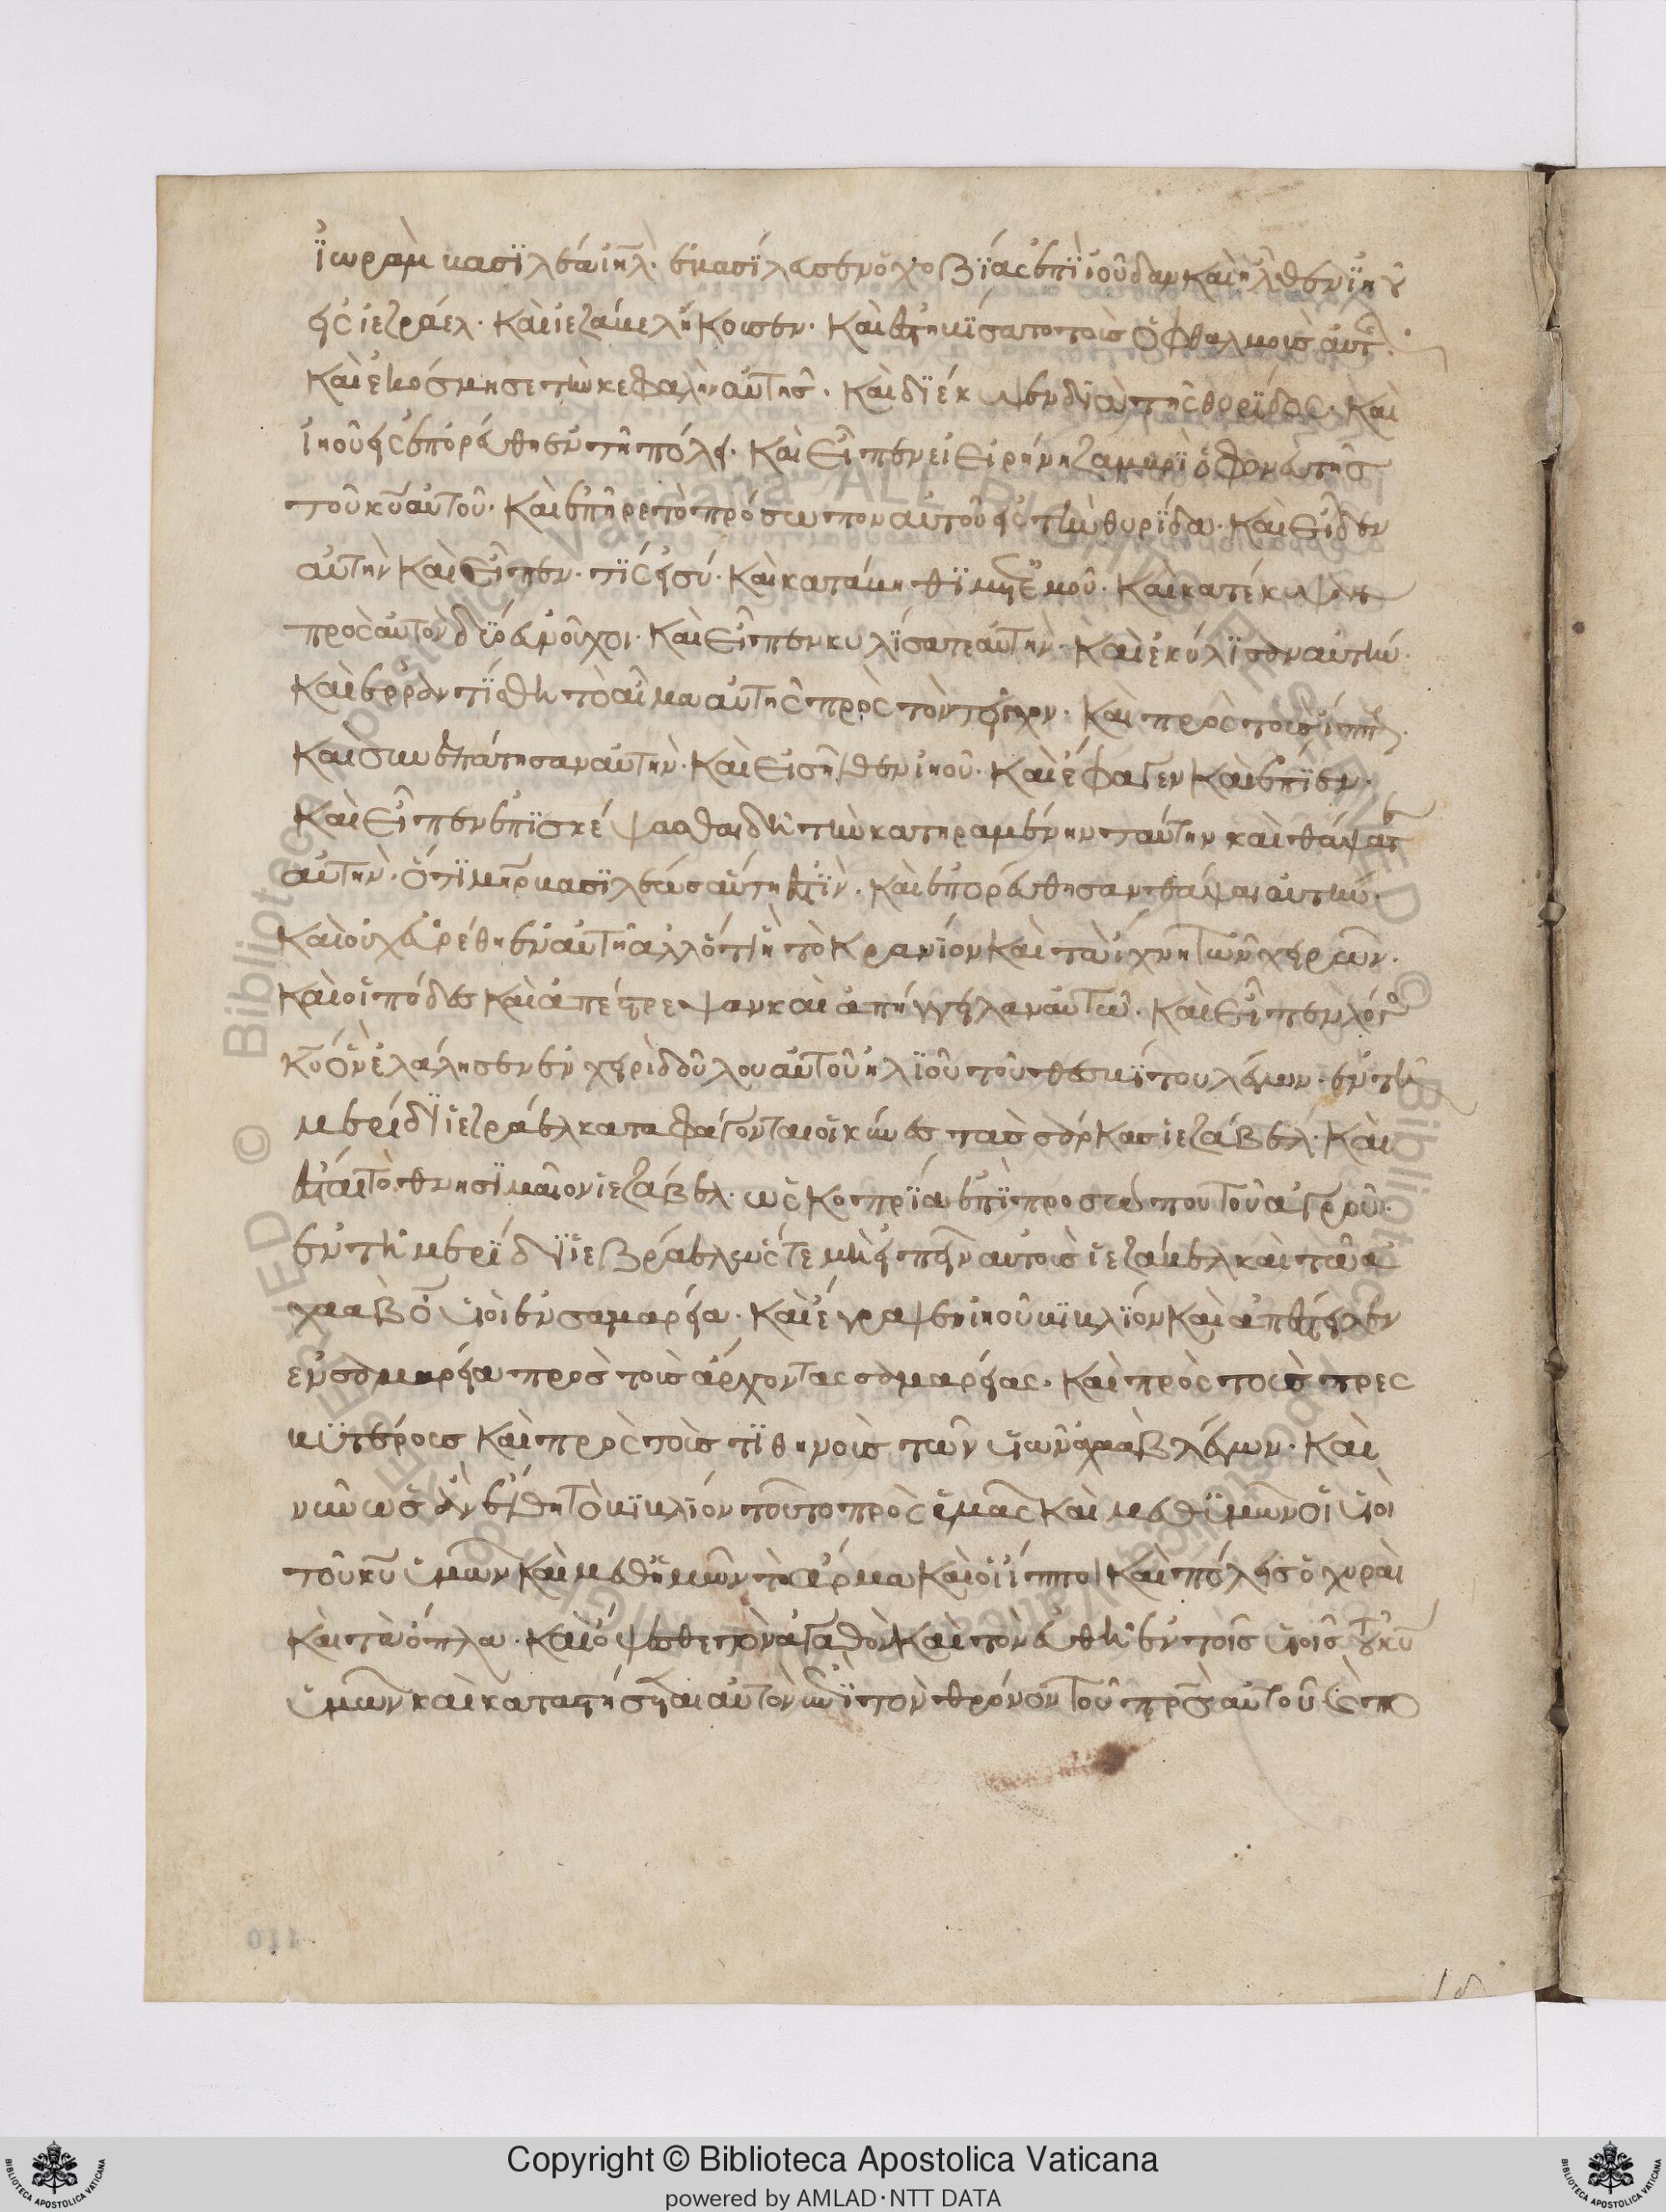 ἰωρὰμ βασιλέωσ ιηλ· ἐβασίλευσεν ὀχοζίας ἐπὶ ἰούδαν καὶ ἦλθεν ἰηοῦ
εἰς ἰεζράελ· καὶ ἰεζάβελ ἤκουσεν· καὶ ἐστιβίσατο τοὺσ ὀφθαλμοὺσ αὐτῆς·
καὶ ἐκόσμησε τὴν κεφαλὴν αὐτῆσ· καὶ διέκυψεν διὰ τῆς θυρίδος· καὶ
ἰηοῦ εἰσεπορεύθη ἐν τῆ πόλει· καὶ εἶπεν εἰ εἰρήνη ζαμβρὶ ὁ φονευτὴσ
τοῦ κυ αὐτοῦ· καὶ ἐπῆρε τὸ πρόσωπον αὐτοῦ εἰς τὴν θυρίδα· καὶ εἶδεν
αὐτὴν καὶ εἶπεν· τίς εἶ σύ· κατάβηθι μετ ἐμοῦ· καὶ κατέκυψαν
πρὸς αὐτὸν δύο εὐνοῦχοι· καὶ εἶπεν κυλίσατε αὐτήν· καὶ ἐκύλισαν αὐτήν·
καὶ ἐρραντίσθη τὸ αἷμα αὐτῆς πρὸς τὸν τοῖχον· καὶ πρὸς τοὺσ ἵππους·
καὶ συνεπάτησαν αὐτήν· καὶ εἰσῆλθεν ἰηοῦ· καὶ ἔφαγεν καὶ ἔπιεν·
καὶ εἶπεν ἐπισκέψασθαι δὴ τὴν κατηραμένην ταύτην καὶ θάψατε
αὐτήν· ὅτι θυγάτηρ βασιλέωσ αὕτη ἐστίν· καὶ ἐπορεύθησαν θάψαι αὐτήν·
καὶ οὐχ εὑρέθη ἐν αὐτῆ ἀλλ ὅτι ἢ τὸ κρανίον καὶ τὰ ἴχνη τῶν χειρῶν·
καὶ οἱ πόδεσ καὶ ἀπέστρεψαν καὶ ἀπήγγειλαν αὐτῶ· καὶ εἶπεν λόγος
κυ ὃν ἐλάλησεν ἐν χειρὶ δούλου αὐτοῦ ἠλιοῦ τοῦ θεσβίτου λέγων· ἐν τῆ
μερίδι ἰεζράελ καταφάγονται οἱ κύνεσ τασ σάρκασ ἰεζάβελ· καὶ
ἔσται τὸ θνησιμαῖον ἰεζάβελ· ὡς κοπρία ἐπὶ προσώπου τοῦ ἀγροῦ·
ἐν τῆ μερίδι ἰεζράελ ὥστε μὴ εἰπεῖν αὐτοὺσ ἰεζάβελ καὶ τῶ ἀ
χαὰβ ο υἱοὶ ἐν σαμαρεία· καὶ ἔγραψεν ἰηοῦ βιβλίον καὶ ἀπέστειλεν
ἐν σαμαρεία πρὸσ τοὺσ ἄρχοντας σαμαρείας· καὶ πρὸς τοὺσ πρεσ
βυτέρουσ καὶ πρὸς τοὺσ τιθηνοὺσ τῶν υἱῶν ἀχαὰβ λέγων· καὶ
νῦν ὡσ ἂν ἔλθη τὸ βιβλίον τοῦτο πρὸς ὑμᾶς καὶ μεθ ὑμῶν οἱ υἱοὶ
τοῦ κυ ὑμῶν καὶ μεθ ὑμῶν τὸ ἅρμα καὶ οἱ ἵπποι καὶ πόλεισ ὀχυραὶ
καὶ τὰ ὅπλα· καὶ ὄψεσθε τὸν ἀγαθὸν καὶ τὸν εὐθῆ ἐν τοῖσ υἱοῖσ τοῦ κυ
ὑμῶν καὶ καταστήσεται αὐτὸν ἐπὶ τὸν θρόνον τοῦ πρσ αὐτοῦ
Copyright © Biblioteca Apostolica Vaticana
powered by AMLAD·NTT DATA